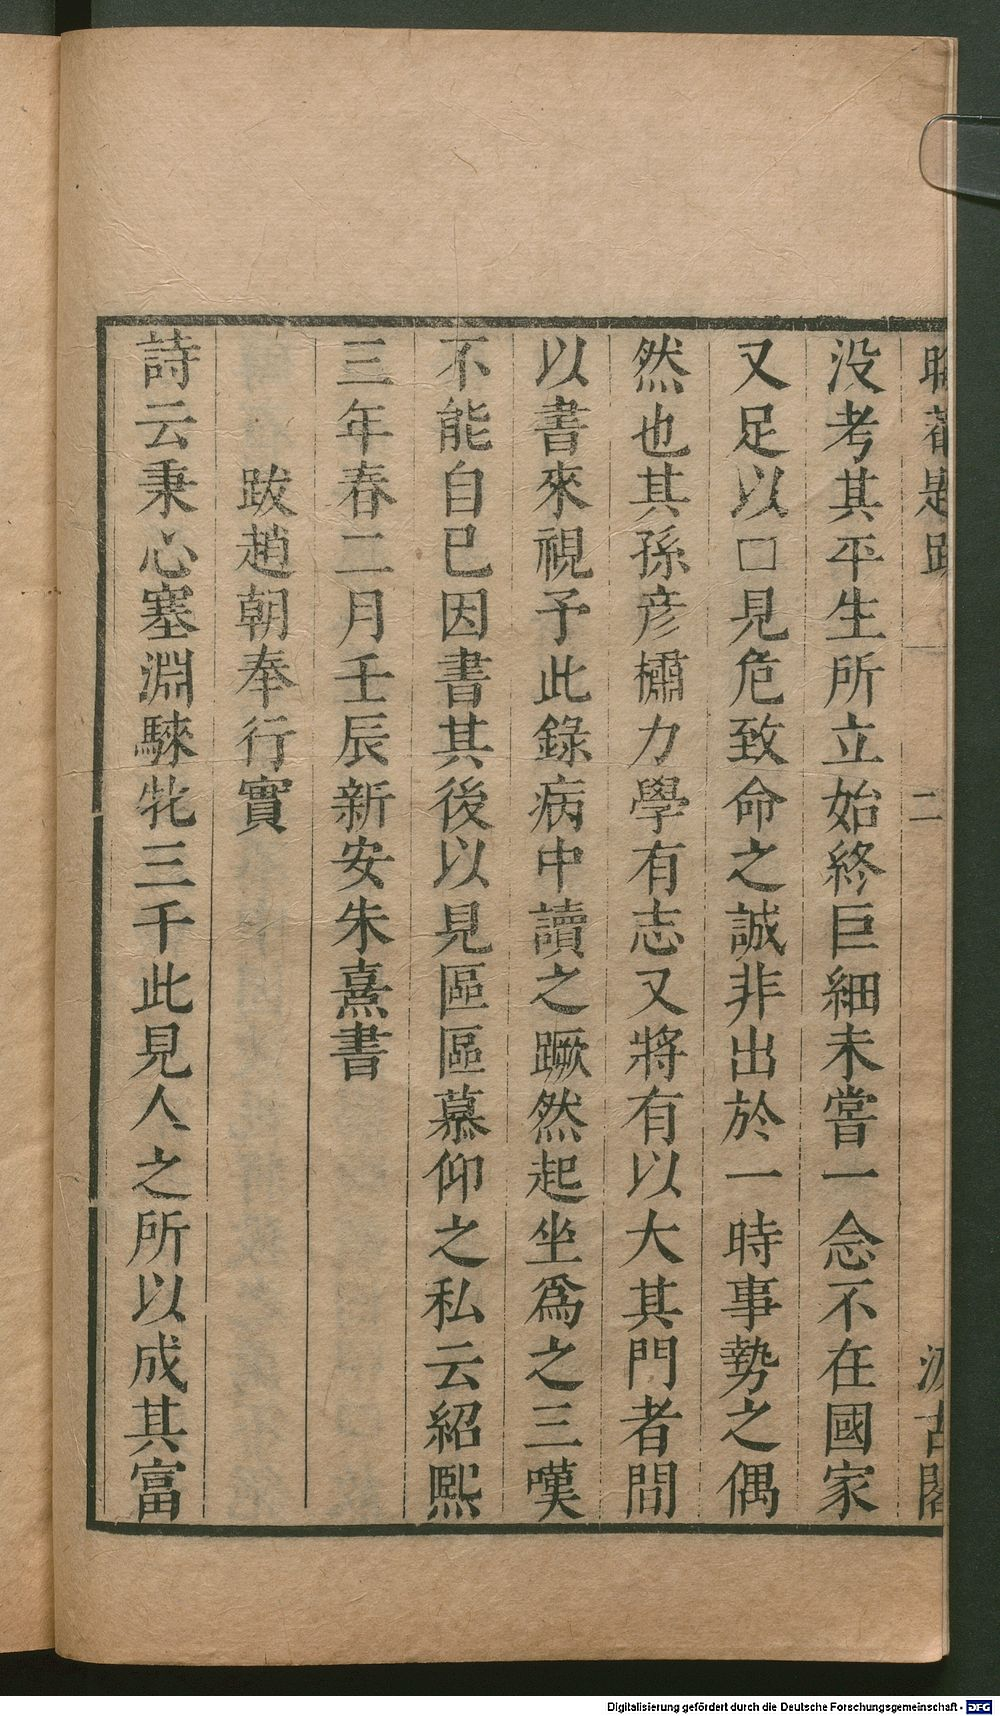 晦菴題跋 二 汲古閣
没考其平生所立始終巨細未嘗一念不在國家
又足以口見危致命之誠非出於一時事勢之偶
然也其孫彦櫹力學有志又將有以大其門者間
以書來視予此錄病中讀之蹶然起坐爲之三嘆
不能自已因書其後以見區區慕仰之私云紹熙
三年春二月壬辰新安朱熹書
跋趙朝奉行實
詩云秉心塞淵騋牝三千此見人之所以成其富
Digitalisierung gefördert durch die Deutsche Forschungsgemeinschaft - DFG